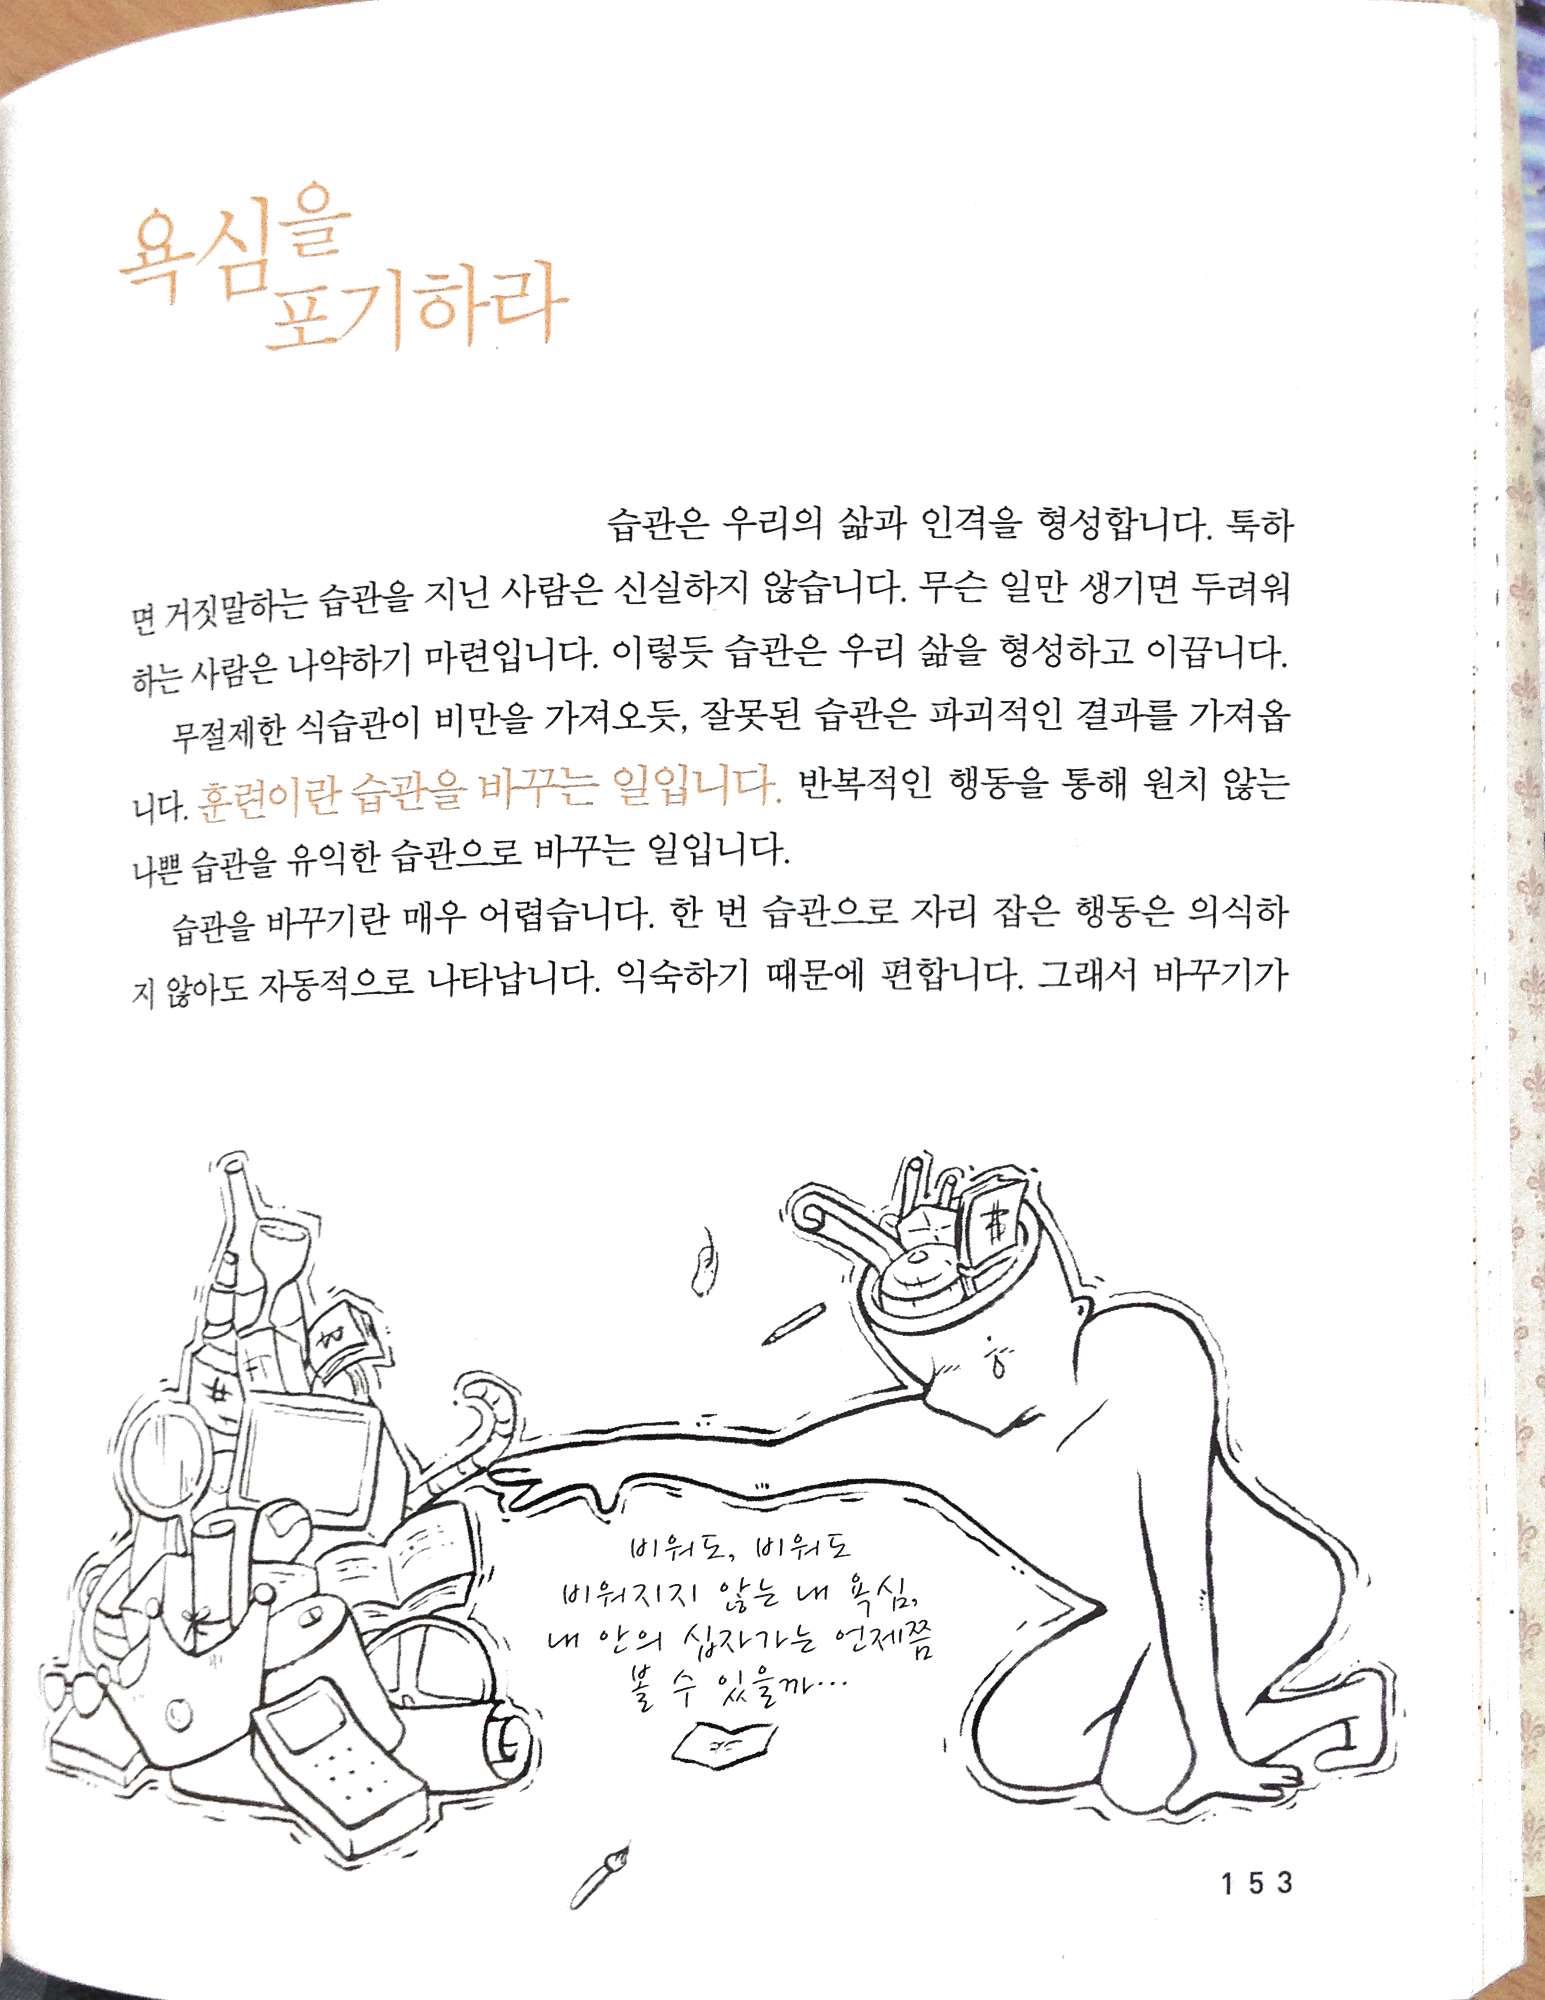 욕심을
포기하라
습관은 우리의 삶과 인격을 형성합니다. 툭하
면 거짓말하는 습관을 지닌 사람은 신실하지 않습니다. 무슨 일만 생기면 두려워
하는 사람은 나약하기 마련입니다. 이렇듯 습관은 우리 삶을 형성하고 이끕니다.
무절제한 식습관이 비만을 가져오듯, 잘못된 습관은 파괴적인 결과를 가져옵
니다. 훈련이란 습관을 바꾸는 일입니다. 반복적인 행동을 통해 원치 않는
나쁜 습관을 유익한 습관으로 바꾸는 일입니다.
습관을 바꾸기란 매우 어렵습니다. 한 번 습관으로 자리 잡은 행동은 의식하
지 않아도 자동적으로 나타납니다. 익숙하기 때문에 편합니다. 그래서 바꾸기가
비워도, 비워도
비워지지 않는 내 욕심,
내 안의 십자가는 언제쯤
볼 수 있을까...
153